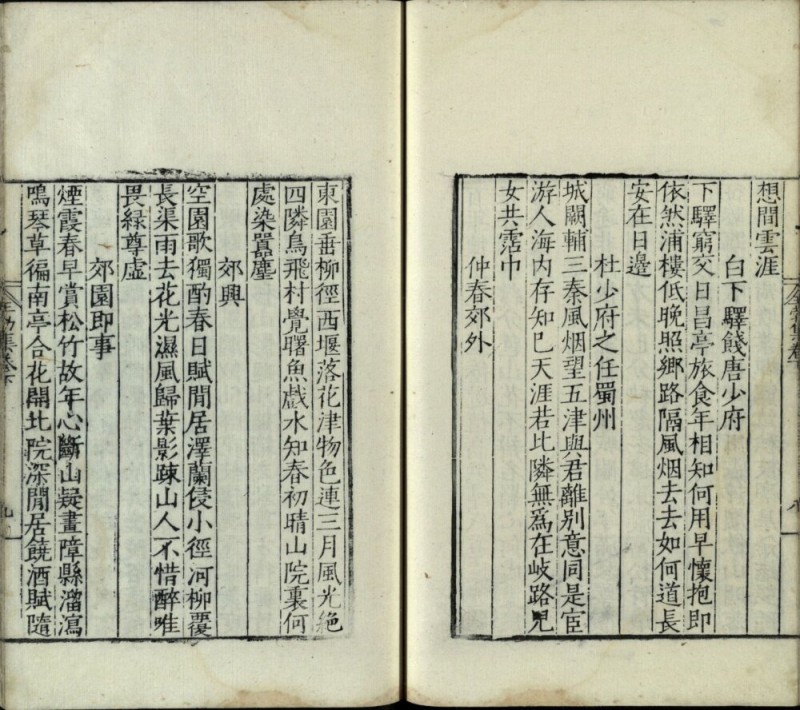 想間雲涯
白下驛餞唐少府
下驛窮交日昌亭旅食年相知何用早懷抱即
依然浦樓低晚照鄉路隔風烟去去如何道長
安在日邊
杜少府之任蜀州
城闕輔三秦風烟望五津與君離别意同是宦
游人海内存知巳天涯若比隣無爲在岐路兒
女共霑巾
仲春郊外
東園垂柳徑西堰落花津物色連三月風光絶
四隣鳥飛村覺曙魚戲水知春初晴山院裏何
處染嚣塵
郊興
空園歌獨酌春日賦閒居澤蘭侵小徑河柳覆
長渠雨去花光濕風歸葉影踈山人不惜醉唯
畏緑尊虛
郊園即事
煙霞春早賞松竹故年心斷山疑畫障縣溜瀉
鳴琴草徧南亭合花開北院深閒居饒酒賦隨